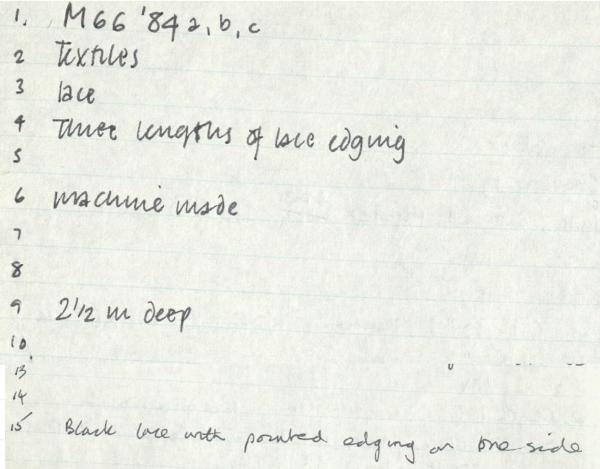 1. M66 '84 a, b, c
2 Textiles
3 lace
4 Three lengths of lace edging
5
6 machine made
7
8
9 2 1/2 in deep
10
13
14
15 Black lace with pointed edging on one side